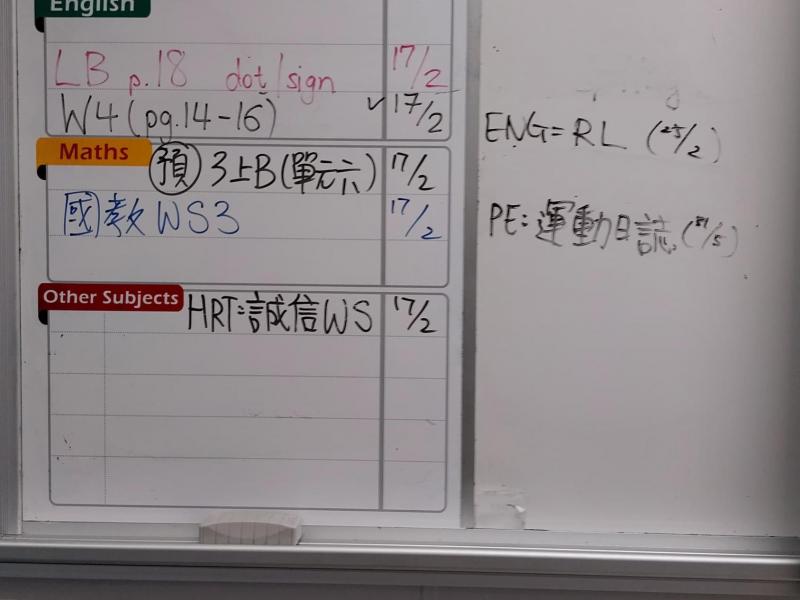 English
LB p.18 dot/sign 17/2
W4 (pg.14-16) ✓17/2
Maths
預 3上B(單元六) 17/2
國教WS3 17/2
Other Subjects
HRT:誠信WS 17/2
ENG=RL (25/2)
PE:運動日誌(31/5)